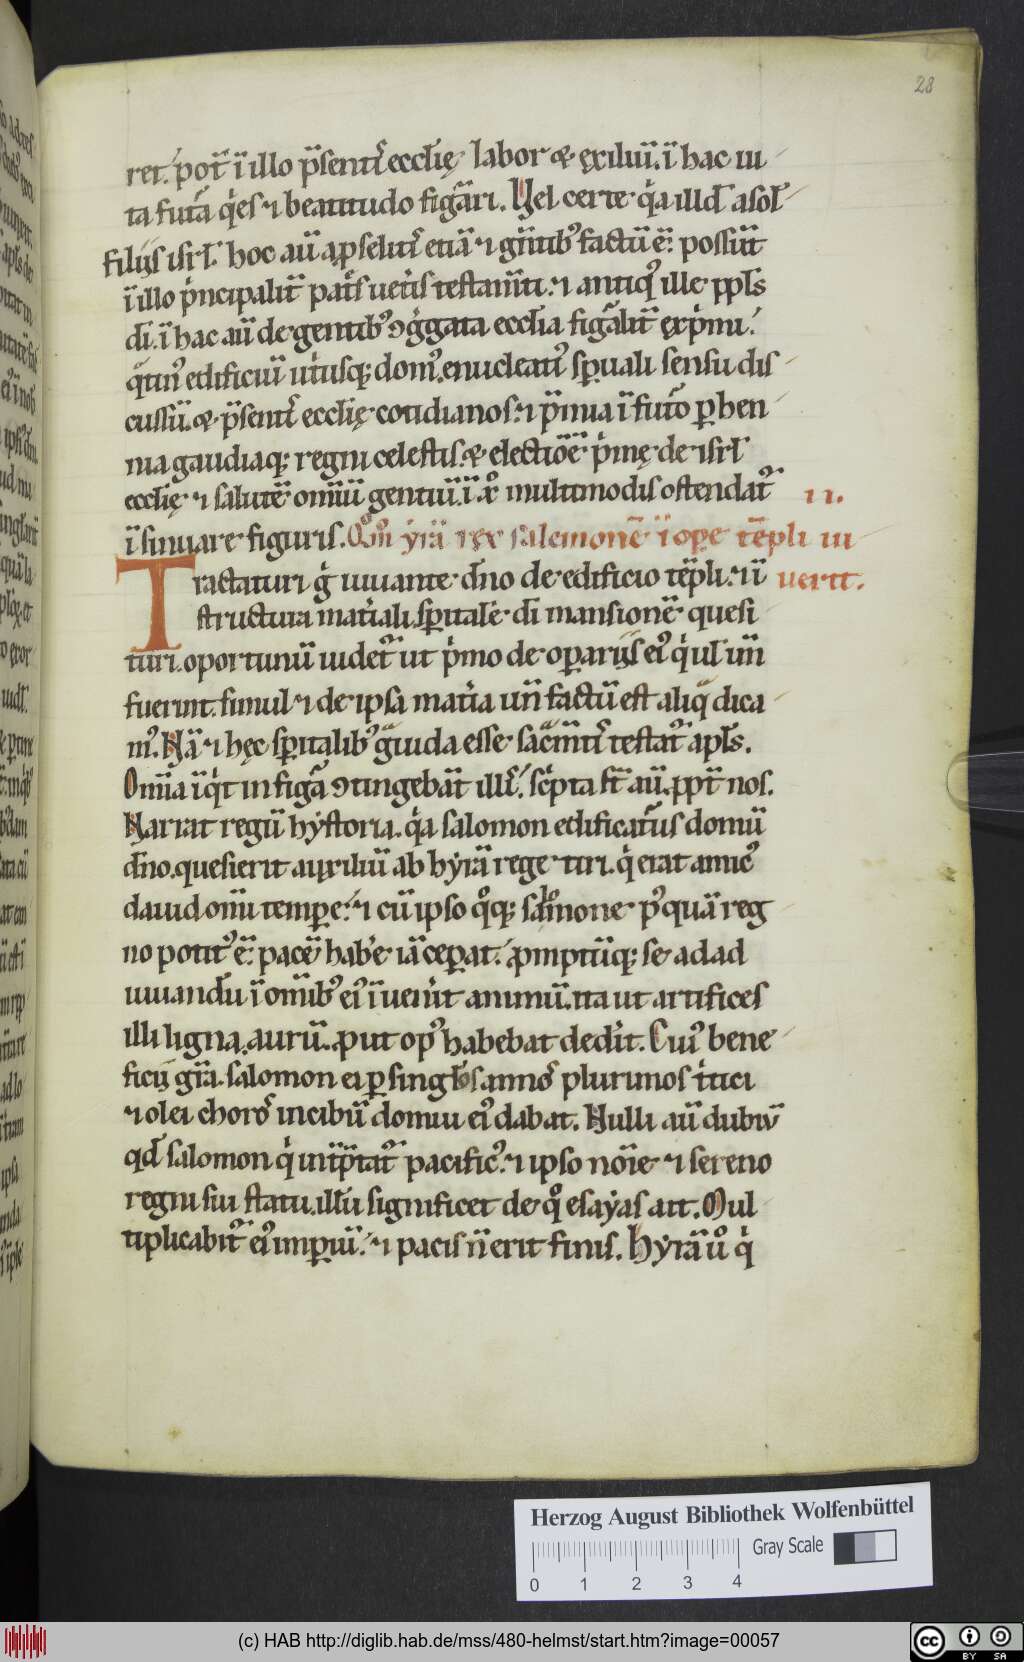 28
ret. pot̄ ı̄ illo p̄senti᷒ eccl̄ię labor & exiliū. ı̄ hac ui
ta futa᷒ qͥes ⁊ beatitudo figa᷒ri. Vel certe qͥa illd̄ a sol̄
filijs isrl̄. hoc aū a pseliti᷒ etiā ⁊ gn̄tibꝰ factū ē: possūt
ı̄ illo pͥncipalit̄ pat̄s uet̄is testam̄ti. ⁊ antiqꝰ ille ppl̄s
dı̄. ı̄ hac aū de gentibꝰ ꝯgͥgata eccl̄ia figa᷒lit̄ expͥmi.
qᷓtinꝰ edificiū utͥusq; domꝰ. enucleatiꝰ spuali sensu dis
cussū. & p̄senti᷒ eccl̄ię cotidianos. ⁊ p̄mia ı̄ futo᷒ p hen
nia gaudiaq; regni celestis. & electiōē pͥmę de isrl̄
eccl̄ię ⁊ salutē om̄iū gentiū. ı̄ xͦ multimodis ostendat᷒
ı̄sinuare figuris. Qm̄ yrā rex salemonē ı̄ ope tēpli iu
II.
uerit.
Tractaturi gͥ iuuante dn̄o de edificio tēpli. ⁊ ı̄
structura mat̄iali. spitale dı̄ mansionē quesi
turi. oportunū uidet᷒ ut pͥmo de oparijs eiꝰ qͥ ul̄ un̄
fuerint. simul ⁊ de ipsa mat̄ia un̄ factū est aliqᷓ dica
mꝰ. Nā ⁊ hęc spitalibꝰ gᷓuida esse sac̄m̄ti᷒ testat᷒ apl̄s.
Om̄ia ı̄qͥt in figa᷒ ꝯtingebāt illi᷒. sc̄pta st̄ aū. ppt̄ nos.
Narrat regū hẏstoria. qͥa salomon edificatu᷒s domū
dn̄o. quesierit auxiliū ab hẏrā rege tiri. qͥ erat amicꝰ
dauid om̄i tempe. ⁊ cū ipso qͦq; salomone pꝰquā reg
no potitꝰ ē: pacē hab̄e iā cepat. pmptūq; se ad ad
iuuandū ı̄ om̄ibꝰ eiꝰ ı̄uen̄it animū. ita ut artifices
illi ligna. aurū. put opꝰ habebat dedit̄. Cuiꝰ bene
ficij gr̄a. salomon ei p singlos anno᷒ plurimos tͥtici
⁊ olei choro᷒ in cibū domui eiꝰ dabat. Nulli aū dubiū
qd̄ salomon qͥ int̄ptat᷒ pacificꝰ. ⁊ ipso noı̄e ⁊ sereno
regni sui statu. illū significet de qͦ esaẏas ait. Mul
tiplicabit᷒ eiꝰ imperiū. ⁊ pacis n̄ erit finis. Hẏrā uͦ qͥ
Herzog August Bibliothek Wolfenbüttel
Gray Scale
0 1 2 3 4
(c) HAB http://diglib.hab.de/mss/480-helmst/start.htm?image=00057
cc BY SA